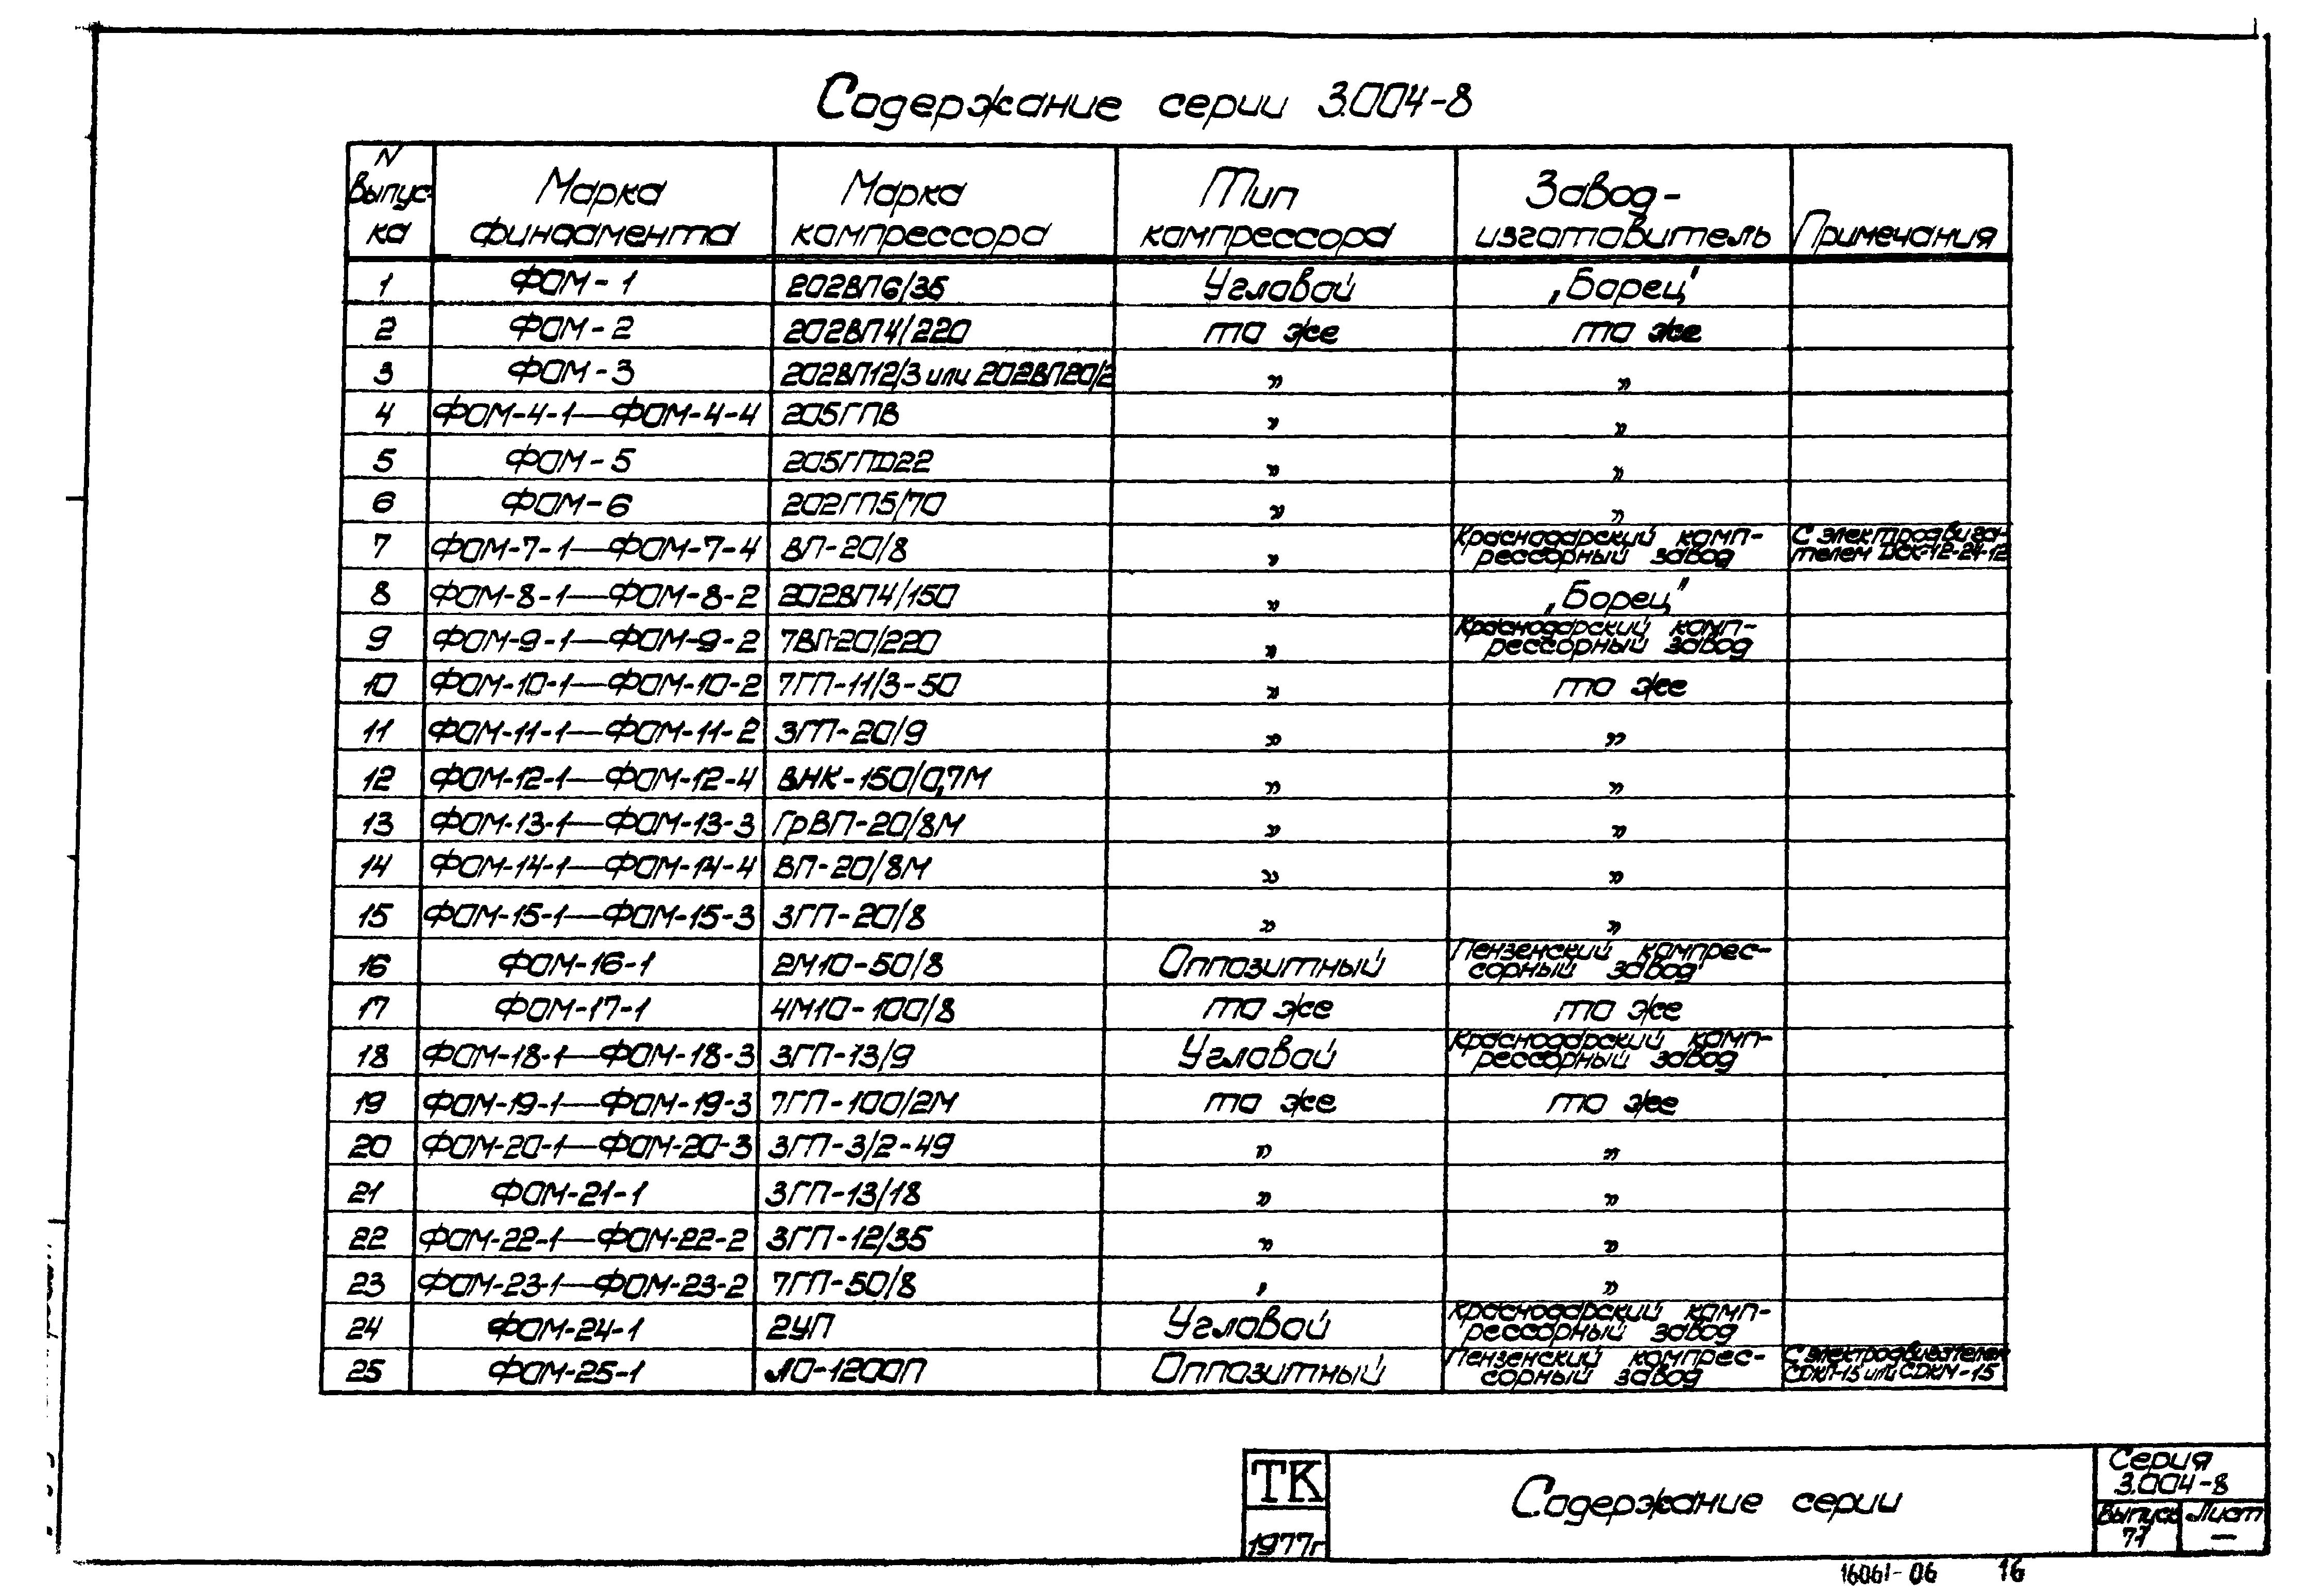 Содержание серии 3.004-8
N Выпус-ка Марка финдамента Марка компрессора Тип компрессора Завод-изготовитель Примечания
1 ФОМ-1 202ВП6/35 Угловой „Борец"
2 ФОМ-2 202ВП4/220 то же то же
3 ФОМ-3 202ВП12/3 или 202ВП20/2 „ „
4 ФОМ-4-1—ФОМ-4-4 205ГПВ „ „
5 ФОМ-5 „ „
6 ФОМ-6 202ГП5/70 „ „
7 ФОМ-7-1—ФОМ-7-4 ВП-20/8 „ Краснодарский комп-рессорный завод С электродвига-телем ДСК-12-24-12
8 ФОМ-8-1—ФОМ-8-2 202ВП4/150 „ „Борец"
9 ФОМ-9-1—ФОМ-9-2 7ВП-20/220 „ Краснодарский комп-рессорный завод
10 ФОМ-10-1—ФОМ-10-2 7ГП-11/3-50 „ то же
11 ФОМ-11-1—ФОМ-11-2 3ГП-20/9 „ „
12 ФОМ-12-1—ФОМ-12-4 ВНК-150/0,7М „ „
13 ФОМ-13-1—ФОМ-13-3 ГрВП-20/8М „ „
14 ФОМ-14-1—ФОМ-14-4 ВП-20/8М „ „
15 ФОМ-15-1—ФОМ-15-3 3ГП-20/8 „ „
16 ФОМ-16-1 2М10-50/8 Оппозитный Пензенский компрес-сорный завод
17 ФОМ-17-1 4М10-100/8 то же то же
18 ФОМ-18-1—ФОМ-18-3 3ГП-13/9 Угловой Краснодарский комп-рессорный завод
19 ФОМ-19-1—ФОМ-19-3 7ГП-100/2М то же то же
20 ФОМ-20-1—ФОМ-20-3 3ГП-3/2-49 „ „
21 ФОМ-21-1 3ГП-13/18 „ „
22 ФОМ-22-1—ФОМ-22-2 3ГП-12/35 „ „
23 ФОМ-23-1—ФОМ-23-2 7ГП-50/8 „ „
24 ФОМ-24-1 2УП Угловой Краснодарский комп-рессорный завод
25 ФОМ-25-1 ЛО-1200П Оппозитный Пензенский компрес-сорный завод С электродвигателем СДКП-15 или СДКМ-15
ТК
1977г
Содержание серии
Серия
3.004-8
Выпуск Лист
—
16061-06 16